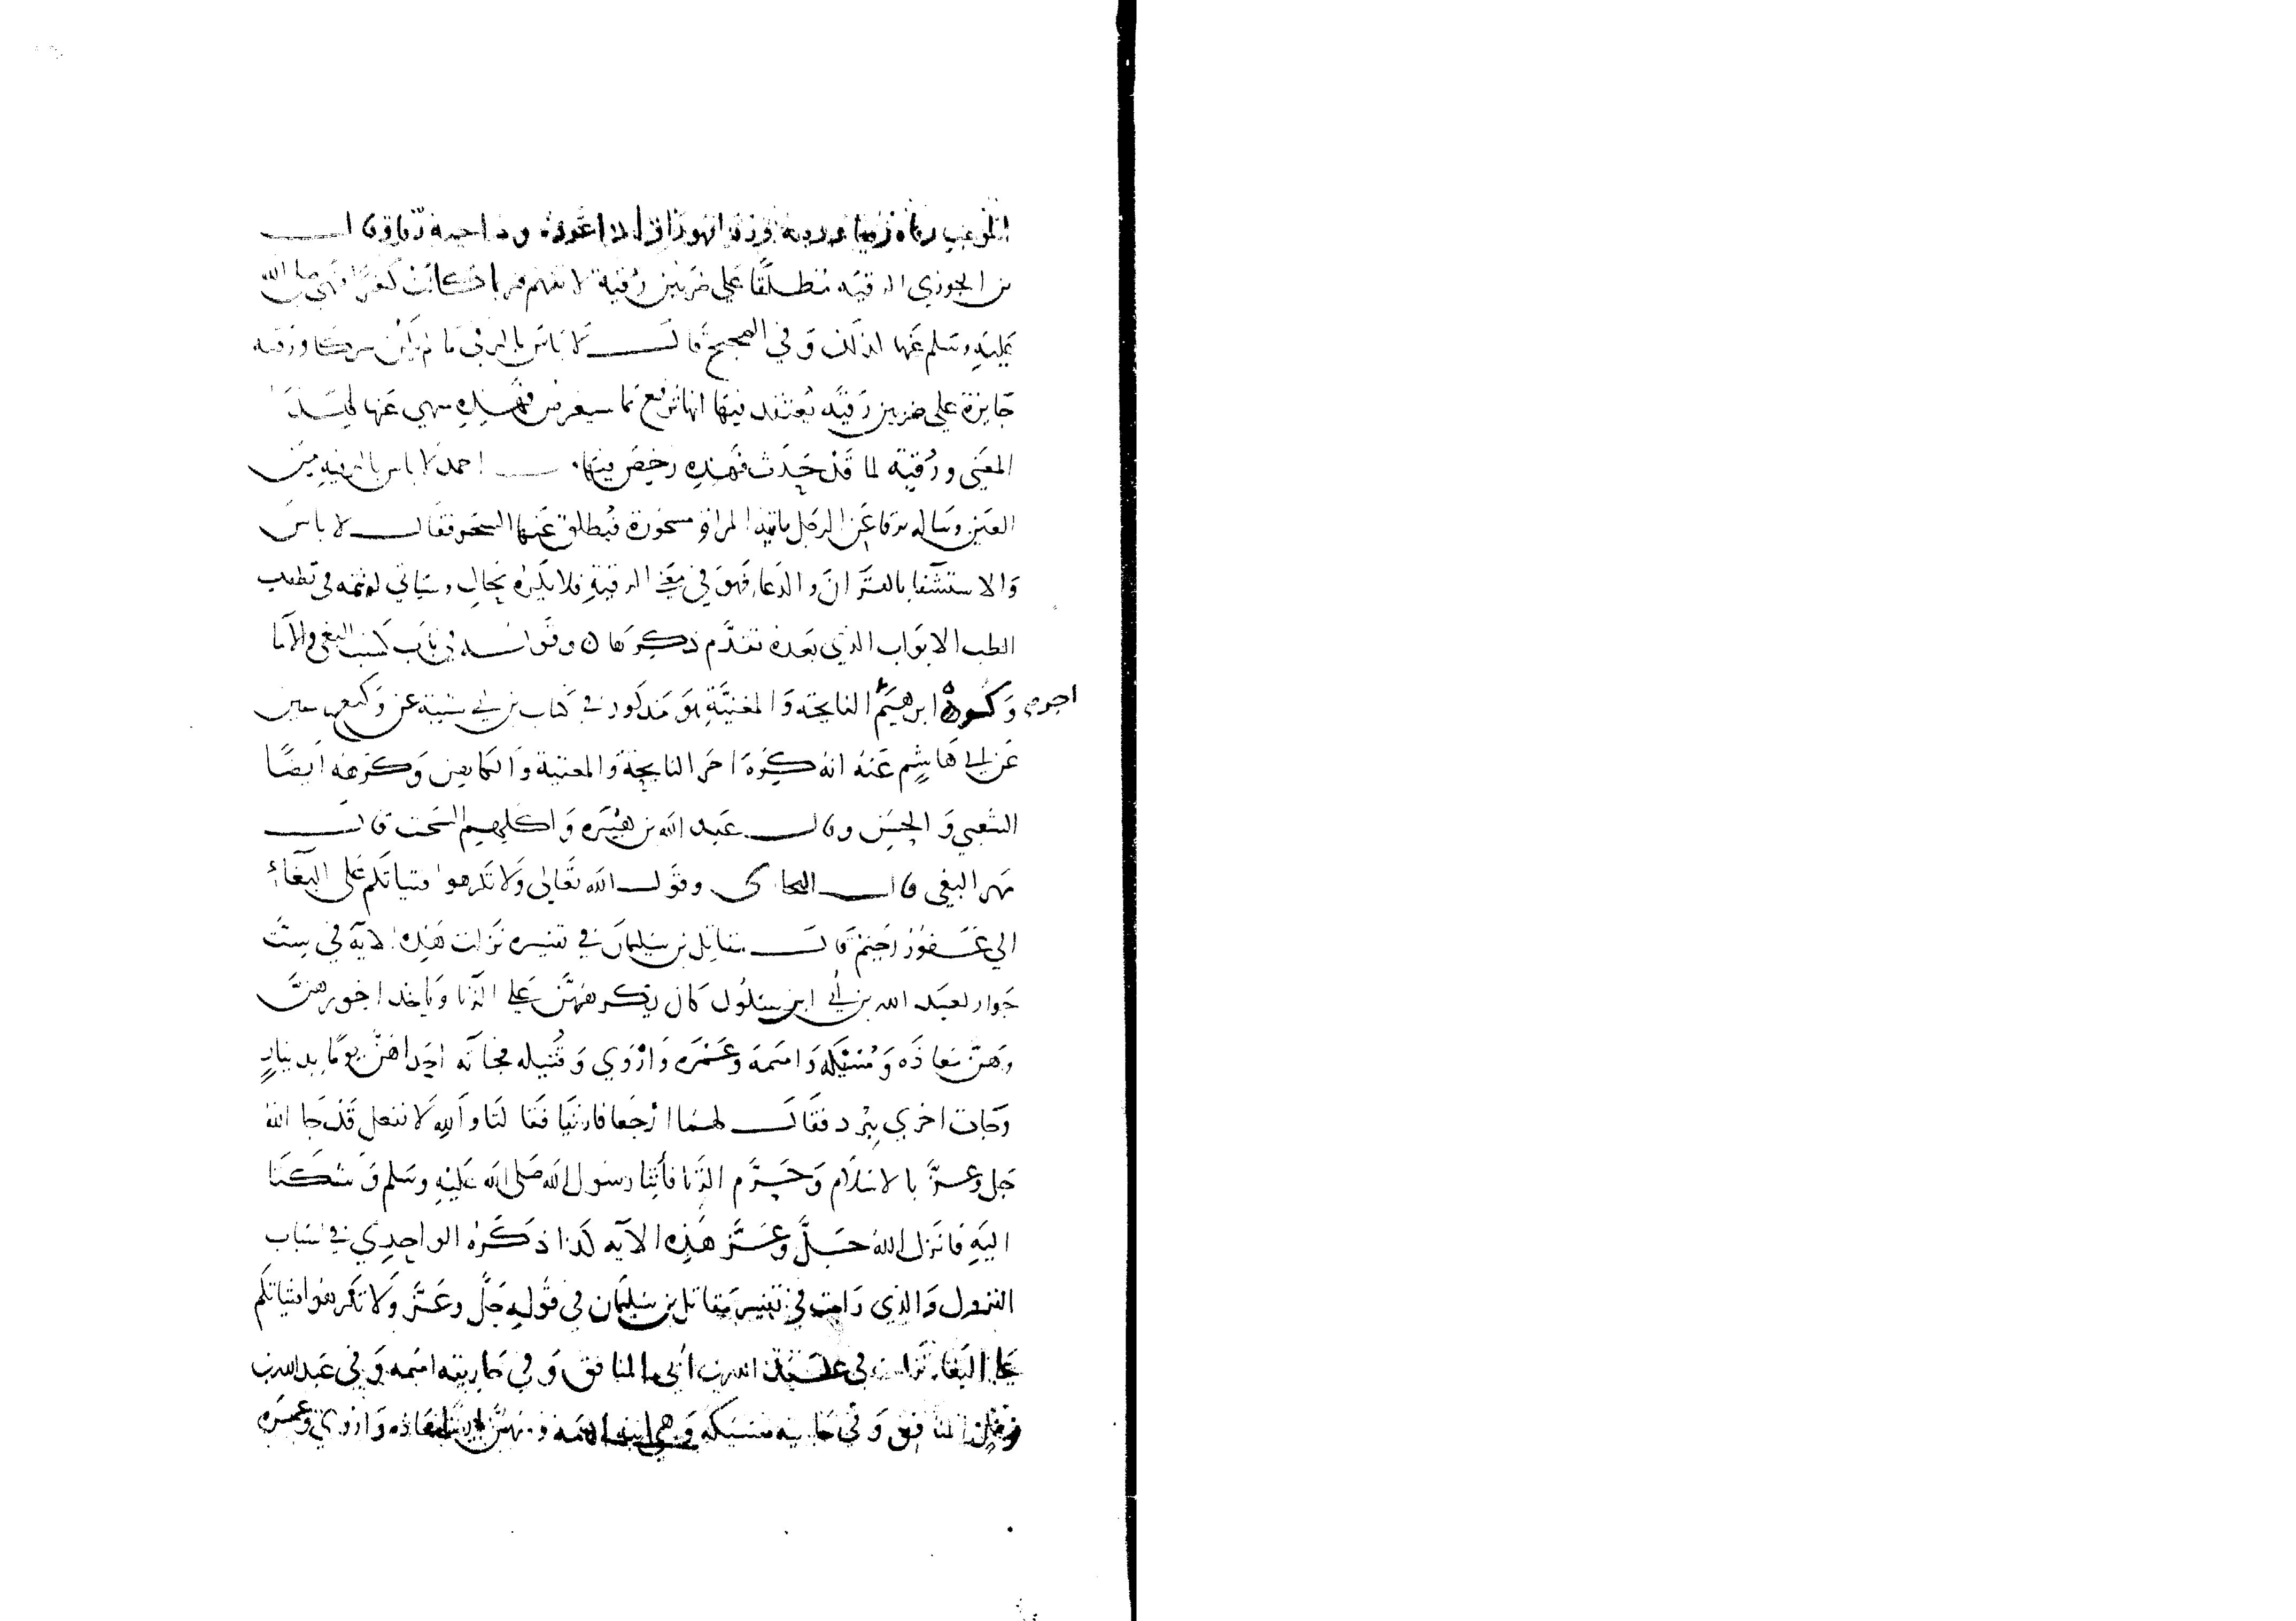 الموعب رقاه رقيا ورقية فهو راق اذا عوذه وصاحبه رقا وقال
بن الجوزي الرقيه مطلقا علي ضربين رقية لا تفهم فربما كانت كفرا فنهي صلى الله
عليه وسلم عنها لذلك وفي الصحيح قال لا باس بالرقي ما لم يكن شركا ورقيه
جايزة علي ضربين رقيه يعتقد فيها انها ترفع ما سيعرض فهذه نهي عنها لهذا
المعني ورقيه لما قد حدث فهذه رخص فيها احمد لا باس بالرقيه من
العين وساله مهنا عن الرجل ياتيه المراة مسحورة فيطلق عنها السحر فقال لا باس
والاستشفا بالقران والدعا فهو في معني الرقية فلا يكره بحال وسياتي له تتمه في
الطب الابواب الذي بعده تقدم ذكرها وقوله في باب كسب البغي والاما
وكره ابرهيم اجور النايحة والمغنية هو مذكور في كتاب بن ابي شيبة عن وكيع
عن ابي هاشم عنه انه كره اجر النايحة والمغنية والكاهن وكرهه ايضا
الشعبي والحسن وقال عبد الله بن هبيره واكلهم السحت قال
مهر البغي قال البخاري وقول الله تعالى ولا تكرهوا فتياتكم على البغاء
الي غفور رحيم قال مقاتل بن سليمان في تفسيره نزلت هذه الاية في ست
جوار لعبد الله بن ابي ابن سلول كان يكرههن علي الزنا وياخذ اجورهن
وهن معاذه ومسيكه واميمه وعمره واروي وقتيله فجاته احداهن يوما بدينار
وجات اخري ببرد فقال لهما ارجعا فازنيا فقالتا والله لا نفعل قد جا الله
جل وعز بالاسلام وحرم الزنا فأتتا رسول الله صلى الله عليه وسلم وشكتا
اليه فانزل الله جل وعز هذه الاية كذا ذكره الواحدي في اسباب
النزول والذي رايت في تفسير مقاتل بن سليمان في قوله جل وعز ولا تكرهوا فتياتكم
علي البغاء نزلت في عبد الله بن أبي المنافق وفي جاريته اميمه وفي عبد الله بن
المنافق وفي جاريته مسيكه وهي ابنة اميمه ومنهن ايضا معاذه واروي وعمره